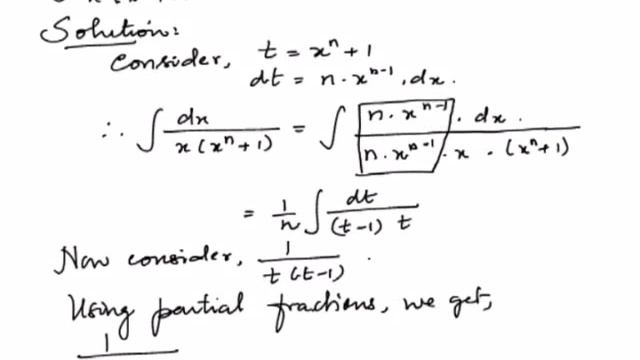 Solution:
Consider, t = xⁿ + 1
dt = n · xⁿ⁻¹ . dx .
∴ ∫ dx / x(xⁿ+1) = ∫ n · xⁿ⁻¹ · dx . / n · xⁿ⁻¹ · x · (xⁿ+1)
= 1/n ∫ dt / (t-1) t
Now consider, 1 / t(t-1) .
Using partial fractions, we get,
1